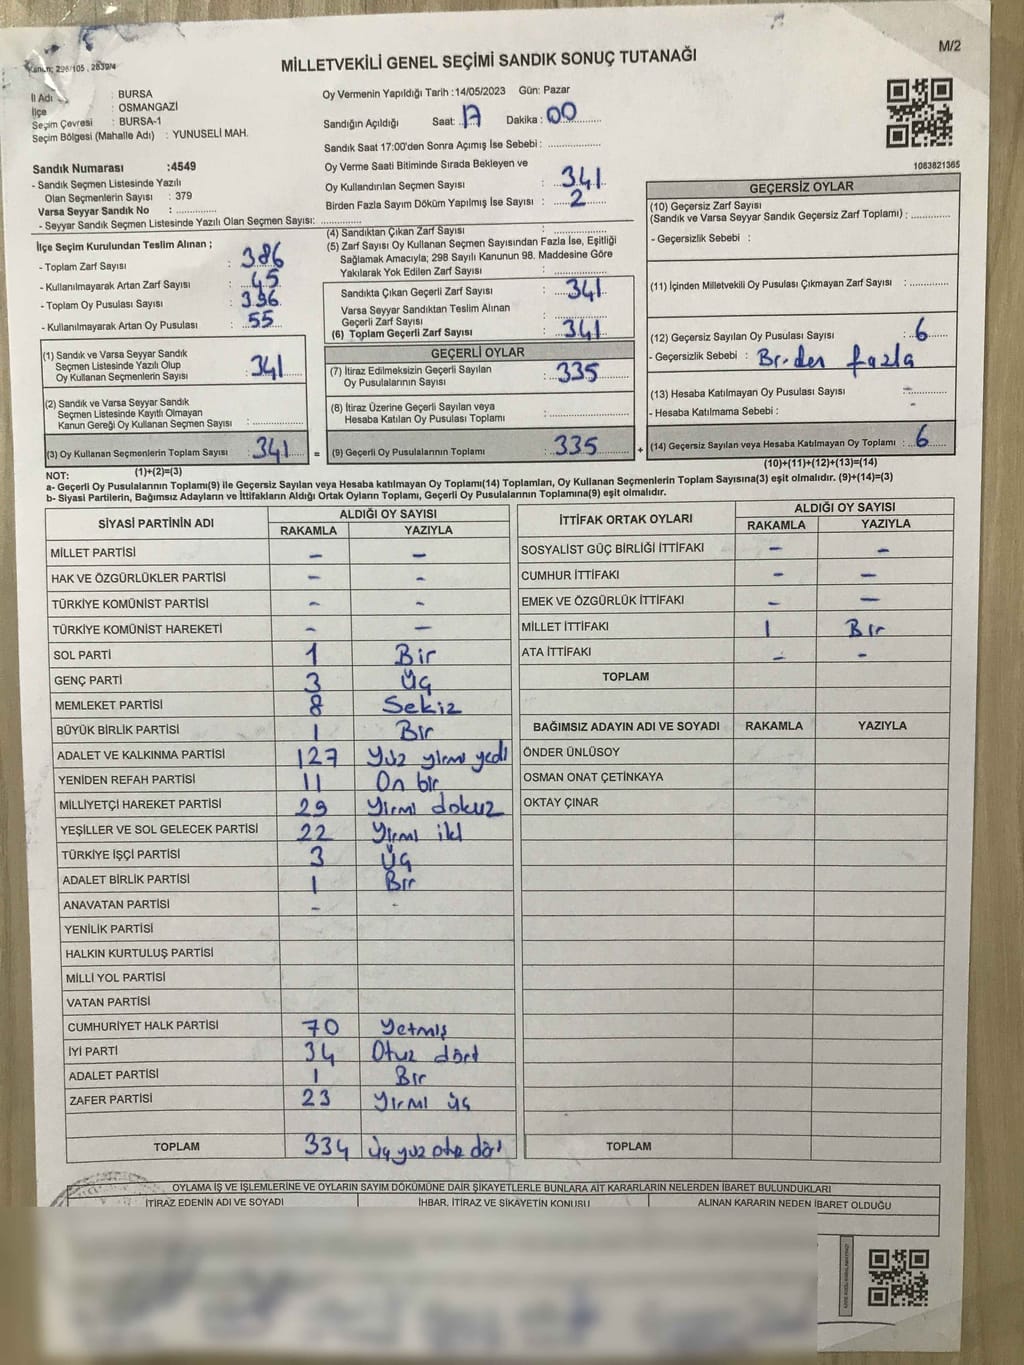 M/2
Kanun: 298/105 , 2839/4
MİLLETVEKİLİ GENEL SEÇİMİ SANDIK SONUÇ TUTANAĞI
İl Adı : BURSA
İlçe : OSMANGAZİ
Seçim Çevresi : BURSA-1
Seçim Bölgesi (Mahalle Adı) : YUNUSELİ MAH.
Oy Vermenin Yapıldığı Tarih :14/05/2023 Gün: Pazar
Sandığın Açıldığı Saat: 17 Dakika : 00
Sandık Saat 17:00'den Sonra Açımış İse Sebebi :
Sandık Numarası :4549
- Sandık Seçmen Listesinde Yazılı
Olan Seçmenlerin Sayısı : 379
Varsa Seyyar Sandık No :
- Seyyar Sandık Seçmen Listesinde Yazılı Olan Seçmen Sayısı:
Oy Verme Saati Bitiminde Sırada Bekleyen ve
Oy Kullandırılan Seçmen Sayısı : 341
Birden Fazla Sayım Döküm Yapılmış İse Sayısı : 2
1083821365
İlçe Seçim Kurulundan Teslim Alınan ;
- Toplam Zarf Sayısı : 386
- Kullanılmayarak Artan Zarf Sayısı : 45
- Toplam Oy Pusulası Sayısı : 396
- Kullanılmayarak Artan Oy Pusulası : 55
(1) Sandık ve Varsa Seyyar Sandık
Seçmen Listesinde Yazılı Olup
Oy Kullanan Seçmenlerin Sayısı : 341
(2) Sandık ve Varsa Seyyar Sandık
Seçmen Listesinde Kayıtlı Olmayan
Kanun Gereği Oy Kullanan Seçmen Sayısı :
(3) Oy Kullanan Seçmenlerin Toplam Sayısı : 341 =
(1)+(2)=(3)
(4) Sandıktan Çıkan Zarf Sayısı :
(5) Zarf Sayısı Oy Kullanan Seçmen Sayısından Fazla İse, Eşitliği
Sağlamak Amacıyla; 298 Sayılı Kanunun 98. Maddesine Göre
Yakılarak Yok Edilen Zarf Sayısı :
Sandıkta Çıkan Geçerli Zarf Sayısı : 341
Varsa Seyyar Sandıktan Teslim Alınan
Geçerli Zarf Sayısı :
(6) Toplam Geçerli Zarf Sayısı : 341
GEÇERLİ OYLAR
(7) İtiraz Edilmeksizin Geçerli Sayılan
Oy Pusulalarının Sayısı : 335
(8) İtiraz Üzerine Geçerli Sayılan veya
Hesaba Katılan Oy Pusulası Toplamı :
(9) Geçerli Oy Pusulalarının Toplamı : 335 +
GEÇERSİZ OYLAR
(10) Geçersiz Zarf Sayısı
(Sandık ve Varsa Seyyar Sandık Geçersiz Zarf Toplamı) :
- Geçersizlik Sebebi :
(11) İçinden Milletvekili Oy Pusulası Çıkmayan Zarf Sayısı :
(12) Geçersiz Sayılan Oy Pusulası Sayısı : 6
- Geçersizlik Sebebi : Birden fazla
(13) Hesaba Katılmayan Oy Pusulası Sayısı : -
- Hesaba Katılmama Sebebi : -
(14) Geçersiz Sayılan veya Hesaba Katılmayan Oy Toplamı : 6
(10)+(11)+(12)+(13)=(14)
NOT:
a- Geçerli Oy Pusulalarının Toplamı(9) ile Geçersiz Sayılan veya Hesaba Katılmayan Oy Toplamı(14) Toplamları, Oy Kullanan Seçmenlerin Toplam Sayısına(3) eşit olmalıdır. (9)+(14)=(3)
b- Siyasi Partilerin, Bağımsız Adayların ve İttifakların Aldığı Ortak Oyların Toplamı, Geçerli Oy Pusulalarının Toplamına(9) eşit olmalıdır.
SİYASİ PARTİNİN ADI ALDIĞI OY SAYISI
RAKAMLA YAZIYLA
MİLLET PARTİSİ - -
HAK VE ÖZGÜRLÜKLER PARTİSİ - -
TÜRKİYE KOMÜNİST PARTİSİ - -
TÜRKİYE KOMÜNİST HAREKETİ - -
SOL PARTİ 1 Bir
GENÇ PARTİ 3 Üç
MEMLEKET PARTİSİ 8 Sekiz
BÜYÜK BİRLİK PARTİSİ 1 Bir
ADALET VE KALKINMA PARTİSİ 127 Yüz yirmi yedi
YENİDEN REFAH PARTİSİ 11 On bir
MİLLİYETÇİ HAREKET PARTİSİ 29 Yirmi dokuz
YEŞİLLER VE SOL GELECEK PARTİSİ 22 Yirmi iki
TÜRKİYE İŞÇİ PARTİSİ 3 Üç
ADALET BİRLİK PARTİSİ 1 Bir
ANAVATAN PARTİSİ - -
YENİLİK PARTİSİ
HALKIN KURTULUŞ PARTİSİ
MİLLİ YOL PARTİSİ
VATAN PARTİSİ
CUMHURİYET HALK PARTİSİ 70 Yetmiş
İYİ PARTİ 34 Otuz dört
ADALET PARTİSİ 1 Bir
ZAFER PARTİSİ 23 Yirmi üç
TOPLAM 334 Üçyüz otuz dört
İTTİFAK ORTAK OYLARI ALDIĞI OY SAYISI
RAKAMLA YAZIYLA
SOSYALİST GÜÇ BİRLİĞİ İTTİFAKI - -
CUMHUR İTTİFAKI - -
EMEK VE ÖZGÜRLÜK İTTİFAKI - -
MİLLET İTTİFAKI 1 Bir
ATA İTTİFAKI - -
TOPLAM
BAĞIMSIZ ADAYIN ADI VE SOYADI RAKAMLA YAZIYLA
ÖNDER ÜNLÜSOY
OSMAN ONAT ÇETİNKAYA
OKTAY ÇINAR
TOPLAM
OYLAMA İŞ VE İŞLEMLERİNE VE OYLARIN SAYIM DÖKÜMÜNE DAİR ŞİKAYETLERLE BUNLARA AİT KARARLARIN NELERDEN İBARET BULUNDUKLARI
İTİRAZ EDENİN ADI VE SOYADI İHBAR, İTİRAZ VE ŞİKAYETİN KONUSU ALINAN KARARIN NEDEN İBARET OLDUĞU